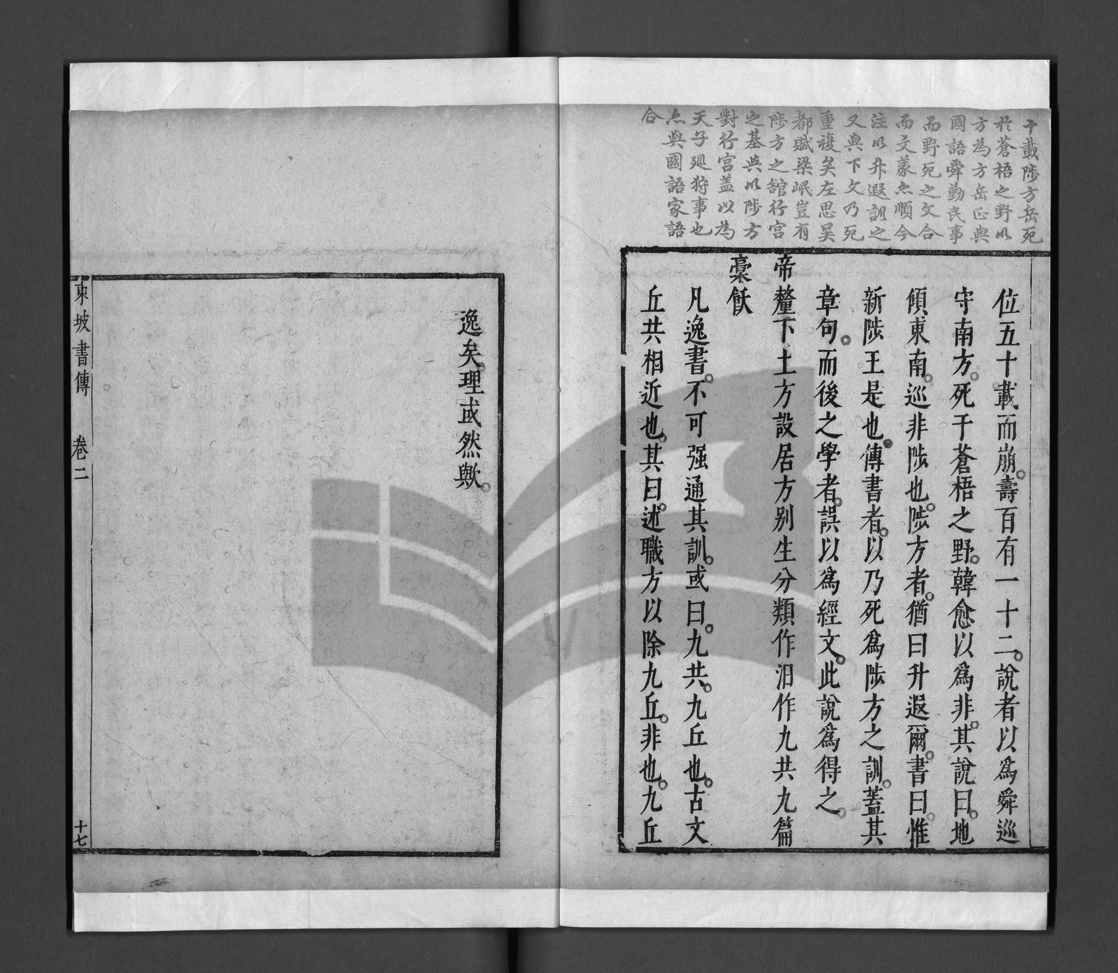 十載陟方岳死
於蒼梧之野以
方為方岳正與
國語舜勤民事
而野死之文合
而文義亦順今
注以升遐訓之
又與下文乃死
重複矣左思吳
都賦梁岷豈有
陟方之館行宮
之基與以陟方
對行宮盖以為
天子廵狩事也
亦與國語家語
合
位五十載而崩壽百有一十二說者以爲舜巡
守南方死于蒼梧之野韓愈以爲非其說曰地
傾東南巡非陟也陟方者猶曰升遐爾書曰惟
新陟王是也傳書者以乃死爲陟方之訓蓋其
章句而後之學者誤以爲經文此說爲得之
帝釐下土方設居方别生分類作汨作九共九篇
稾飫
凡逸書不可强通其訓或曰九共九丘也古文
丘共相近也其曰述職方以除九丘非也九丘
逸矣理或然歟
東坡書傳 卷二 十七